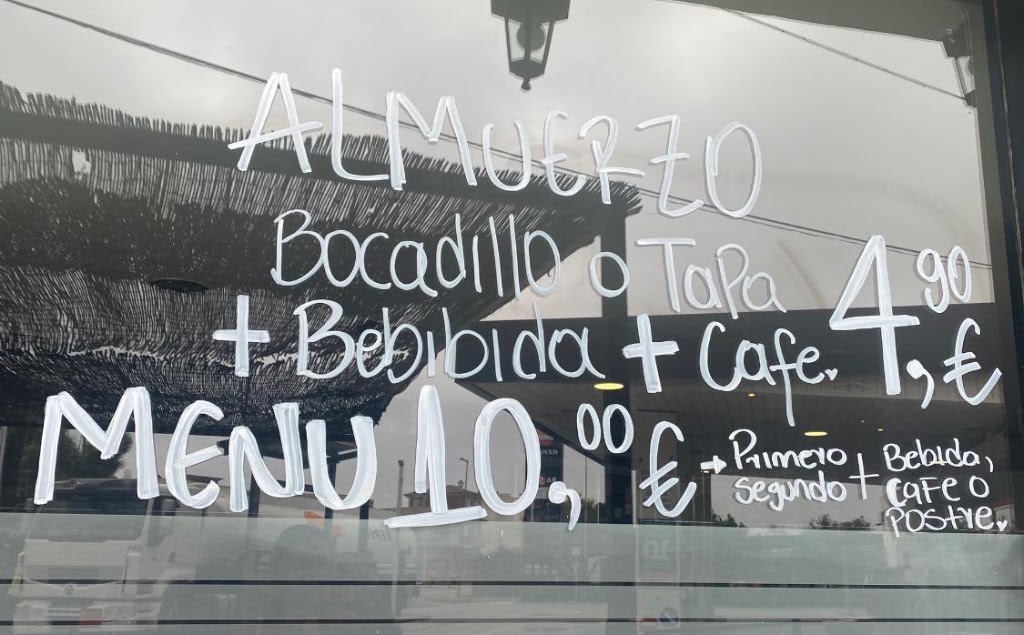 ALMUERZO
Bocadillo o Tapa
+ Bebibida + Cafe. 4,90 €
MENU 10,00 € → Primero segundo + Bebida, cafe o postre.